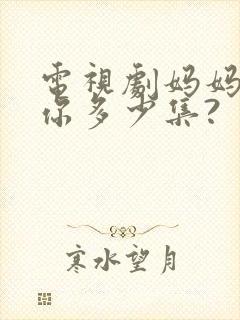 電視劇妈妈
你多少集?
寒水望月